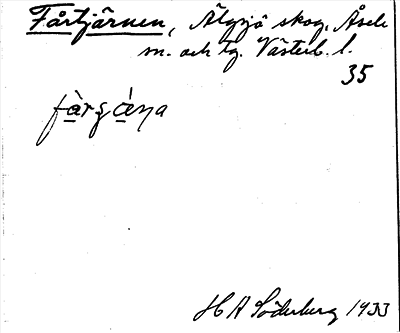 Fårtjärnen, Älgsjö skog, Åsele
m. och tg. Västerb. l.
35
H A Söderberg 1933